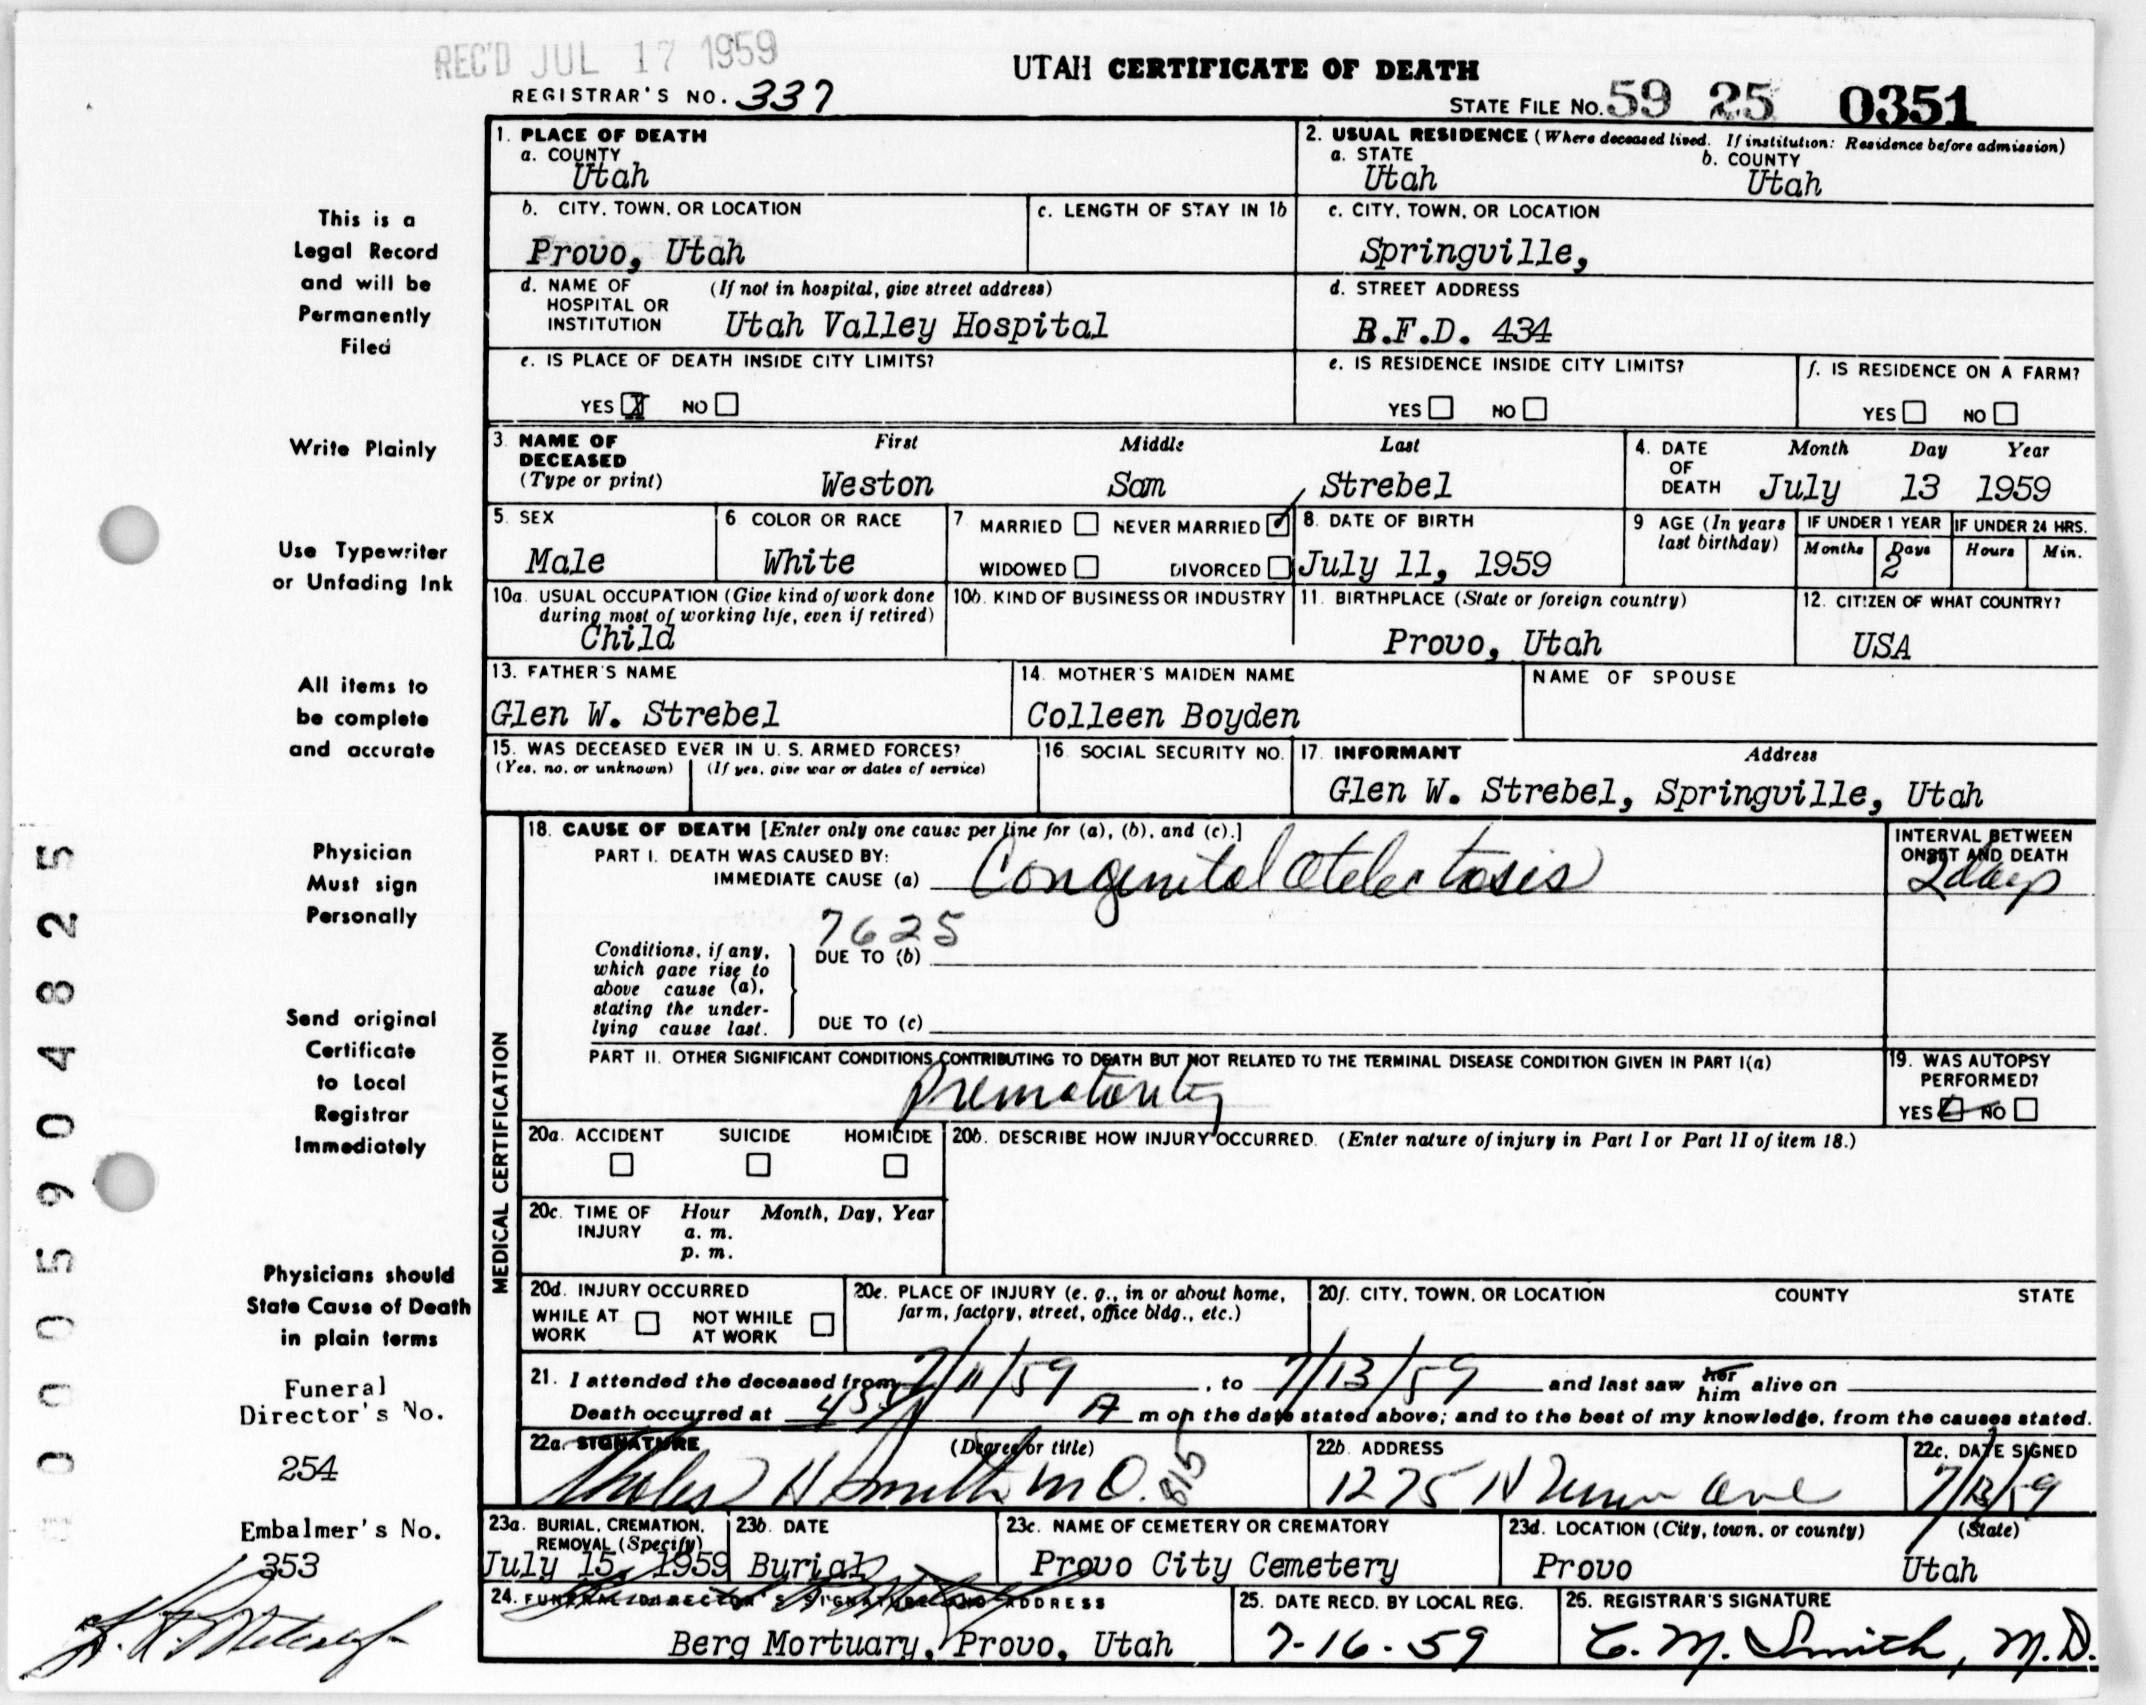 REC'D JUL 17 1959
UTAH CERTIFICATE OF DEATH
REGISTRAR'S NO. 337
STATE FILE NO. 59 25 0351
This is a
Legal Record
and will be
Permanently
Filed
Write Plainly
Use Typewriter
or Unfading Ink
All items to
be complete
and accurate
Physician
Must sign
Personally
Send original
Certificate
to Local
Registrar
Immediately
Physicians should
State Cause of Death
in plain terms
Funeral
Director's No.
254
Embalmer's No.
353
0005904825
1. PLACE OF DEATH
a. COUNTY
Utah
2. USUAL RESIDENCE (Where deceased lived. If institution: Residence before admission)
a. STATE b. COUNTY
Utah Utah
b. CITY, TOWN, OR LOCATION
Provo, Utah
c. LENGTH OF STAY IN 1b
c. CITY, TOWN, OR LOCATION
Springville,
d. NAME OF (If not in hospital, give street address)
HOSPITAL OR
INSTITUTION Utah Valley Hospital
d. STREET ADDRESS
R.F.D. 434
e. IS PLACE OF DEATH INSIDE CITY LIMITS?
YES X NO
e. IS RESIDENCE INSIDE CITY LIMITS?
YES NO
f. IS RESIDENCE ON A FARM?
YES NO
3. NAME OF First Middle Last
DECEASED
(Type or print) Weston Sam Strebel
4. DATE Month Day Year
OF
DEATH July 13 1959
5. SEX
Male
6. COLOR OR RACE
White
7. MARRIED NEVER MARRIED ✓
WIDOWED DIVORCED
8. DATE OF BIRTH
July 11, 1959
9. AGE (In years
last birthday)
IF UNDER 1 YEAR IF UNDER 24 HRS.
Months Days Hours Min.
2
10a. USUAL OCCUPATION (Give kind of work done
during most of working life, even if retired)
Child
10b. KIND OF BUSINESS OR INDUSTRY
11. BIRTHPLACE (State or foreign country)
Provo, Utah
12. CITIZEN OF WHAT COUNTRY?
USA
13. FATHER'S NAME
Glen W. Strebel
14. MOTHER'S MAIDEN NAME
Colleen Boyden
NAME OF SPOUSE
15. WAS DECEASED EVER IN U. S. ARMED FORCES?
(Yes, no, or unknown) (If yes, give war or dates of service)
16. SOCIAL SECURITY NO.
17. INFORMANT Address
Glen W. Strebel, Springville, Utah
MEDICAL CERTIFICATION
18. CAUSE OF DEATH [Enter only one cause per line for (a), (b), and (c).]
PART I. DEATH WAS CAUSED BY:
IMMEDIATE CAUSE (a) Congenital Atelectasis
INTERVAL BETWEEN
ONSET AND DEATH
2 days
7625
Conditions, if any,
which gave rise to
above cause (a),
stating the under-
lying cause last.
DUE TO (b)
DUE TO (c)
PART II. OTHER SIGNIFICANT CONDITIONS CONTRIBUTING TO DEATH BUT NOT RELATED TO THE TERMINAL DISEASE CONDITION GIVEN IN PART I(a)
Prematurity
19. WAS AUTOPSY
PERFORMED?
YES NO
20a. ACCIDENT SUICIDE HOMICIDE
20b. DESCRIBE HOW INJURY OCCURRED. (Enter nature of injury in Part I or Part II of item 18.)
20c. TIME OF Hour Month, Day, Year
INJURY a. m.
p. m.
20d. INJURY OCCURRED
WHILE AT NOT WHILE
WORK AT WORK
20e. PLACE OF INJURY (e. g., in or about home,
farm, factory, street, office bldg., etc.)
20f. CITY, TOWN, OR LOCATION COUNTY STATE
21. I attended the deceased from 7/11/59, to 7/13/59 and last saw her him alive on
Death occurred at 455 A m on the date stated above; and to the best of my knowledge, from the causes stated.
22a. SIGNATURE (Degree or title)
H Smith M D. 815
22b. ADDRESS
1275 N Ave
22c. DATE SIGNED
7/13/59
23a. BURIAL, CREMATION,
REMOVAL (Specify)
July 15, 1959
23b. DATE
Burial
23c. NAME OF CEMETERY OR CREMATORY
Provo City Cemetery
23d. LOCATION (City, town, or county) (State)
Provo Utah
24. FUNERAL DIRECTOR'S SIGNATURE AND ADDRESS
Berg Mortuary, Provo, Utah
25. DATE RECD. BY LOCAL REG.
7-16-59
26. REGISTRAR'S SIGNATURE
C. M. Smith, M.D.